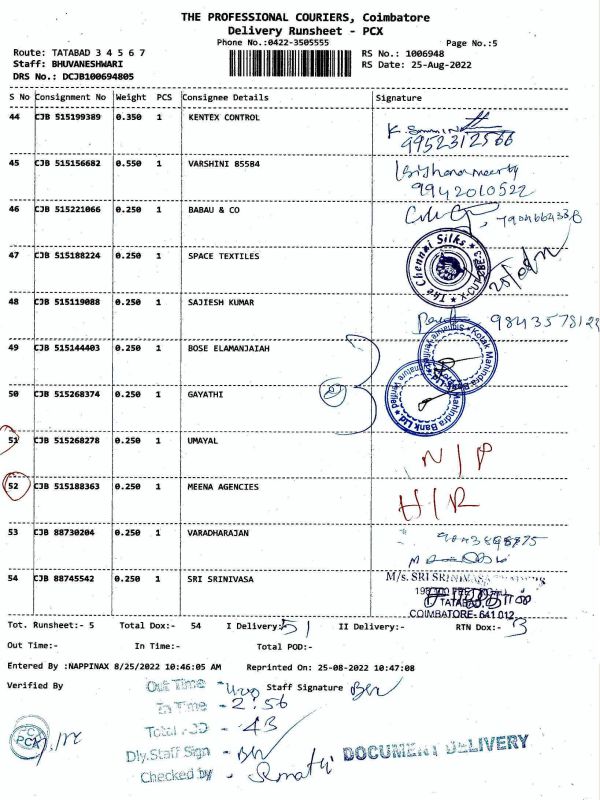 THE PROFESSIONAL COURIERS, Coimbatore
Delivery Runsheet - PCX
Phone No.:0422-3505555
Page No.:5
Route: TATABAD 3 4 5 6 7
RS No.: 1006948
Staff: BHUVANESHWARI
RS Date: 25-Aug-2022
DRS No.: DCJB100694805
S No Consignment No Weight PCS Consignee Details Signature
44 CJB 515199389 0.350 1 KENTEX CONTROL
9952312566
45 CJB 515156682 0.550 1 VARSHINI 85584
9942010522
46 CJB 515221066 0.250 1 BABAU & CO
47 CJB 515188224 0.250 1 SPACE TEXTILES
The Chennai Silks
48 CJB 515119088 0.250 1 SAJIESH KUMAR
49 CJB 515144403 0.250 1 BOSE ELAMANJAIAH
Kotak Mahindra Bank Ltd Signature Verified
50 CJB 515268374 0.250 1 GAYATHI
Mahindra Bank Ltd Signature Verified
51 CJB 515268278 0.250 1 UMAYAL
N/P
52 CJB 515188363 0.250 1 MEENA AGENCIES
H/R
53 CJB 88730204 0.250 1 VARADHARAJAN
54 CJB 88745542 0.250 1 SRI SRINIVASA
M/s. SRI SRINIVASA
TATABAD
COIMBATORE-641 012
Tot. Runsheet:- 5 Total Dox:- 54 I Delivery:- 51 II Delivery:- RTN Dox:- 3
Out Time:- In Time:- Total POD:-
Entered By :NAPPINAX 8/25/2022 10:46:05 AM Reprinted On: 25-08-2022 10:47:08
Verified By
Staff Signature
Out Time -
In Time - 2:56
Total POD - 43
Dly.Staff Sign -
Checked by -
PCX
DOCUMENT DELIVERY